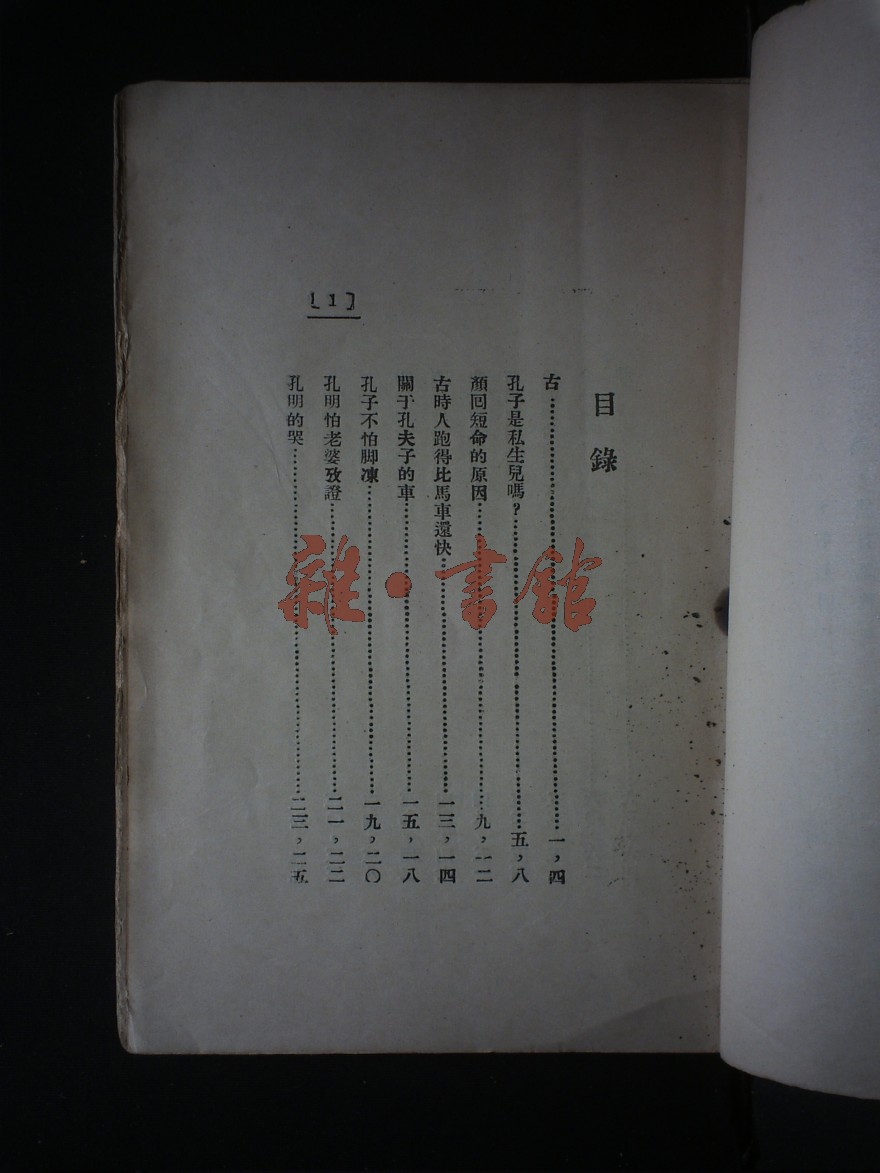 目錄
古…………一，四
孔子是私生兒嗎？…………五，八
顏囘短命的原因…………九，一二
古時人跑得比馬車還快…………一三，一四
關于孔夫子的車…………一五，一八
孔子不怕脚凍…………一九，二〇
孔明怕老婆攷證…………二一，二二
孔明的哭…………二三，二五
[1]
雜·書館